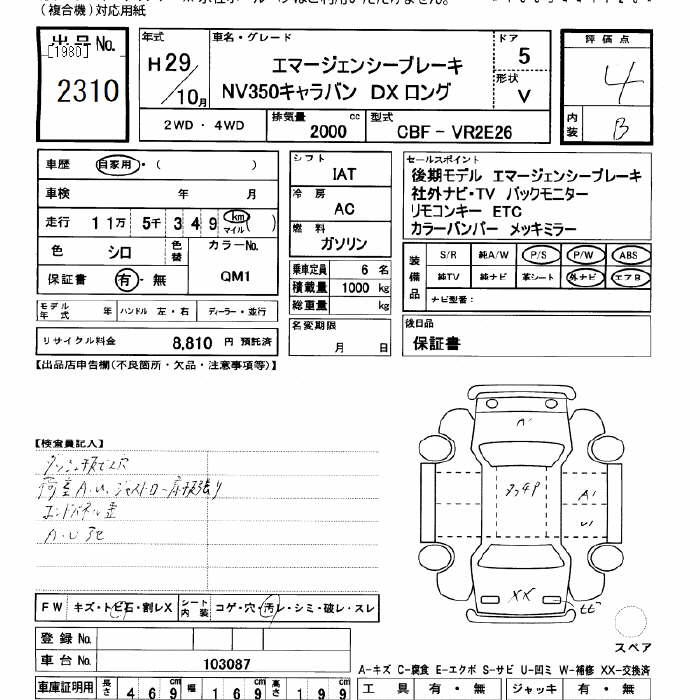 (複合機)対応用紙
出品No.
[1980]
2310
年式
H29
10月
車名・グレード
エマージェンシーブレーキ
NV350キャラバン DX ロング
ドア
5
形状
V
評価点
4
内装
B
2WD・4WD
排気量
2000 cc
型式
CBF-VR2E26
車歴 自家用・( )
車検 年 月
走行 11万 5千 349 km マイル ( )
色 シロ
色替
カラーNo.
QM1
保証書 有・無
シフト
IAT
冷房
AC
燃料
ガソリン
乗車定員 6 名
積載量 1000 kg
総重量 kg
名変期限
月 日
セールスポイント
後期モデル エマージェンシーブレーキ
社外ナビ・TV バックモニター
リモコンキー ETC
カラーバンパー メッキミラー
装備品
S/R 純A/W P/S P/W ABS
純TV 純ナビ 革シート 外ナビ エアB
ナビ型番:
後日品
保証書
モデル年式 年 ハンドル 左・右 ディーラー・並行
リサイクル料金 8,810 円 預託済
【出品店申告欄(不良箇所・欠品・注意事項等)】
【検査員記入】
A.U
FW キズ・トビ石・割レX シート内装 コゲ・穴・汚レ・シミ・破レ・スレ
登録No.
車台No. 103087
車庫証明用 長さ 469 cm 幅 169 cm 高さ 199 cm
A'
A'
U'
XX
スペア
A-キズ C-腐食 E-エクボ S-サビ U-凹ミ W-補修 XX-交換済
工具 有・無 ジャッキ 有・無